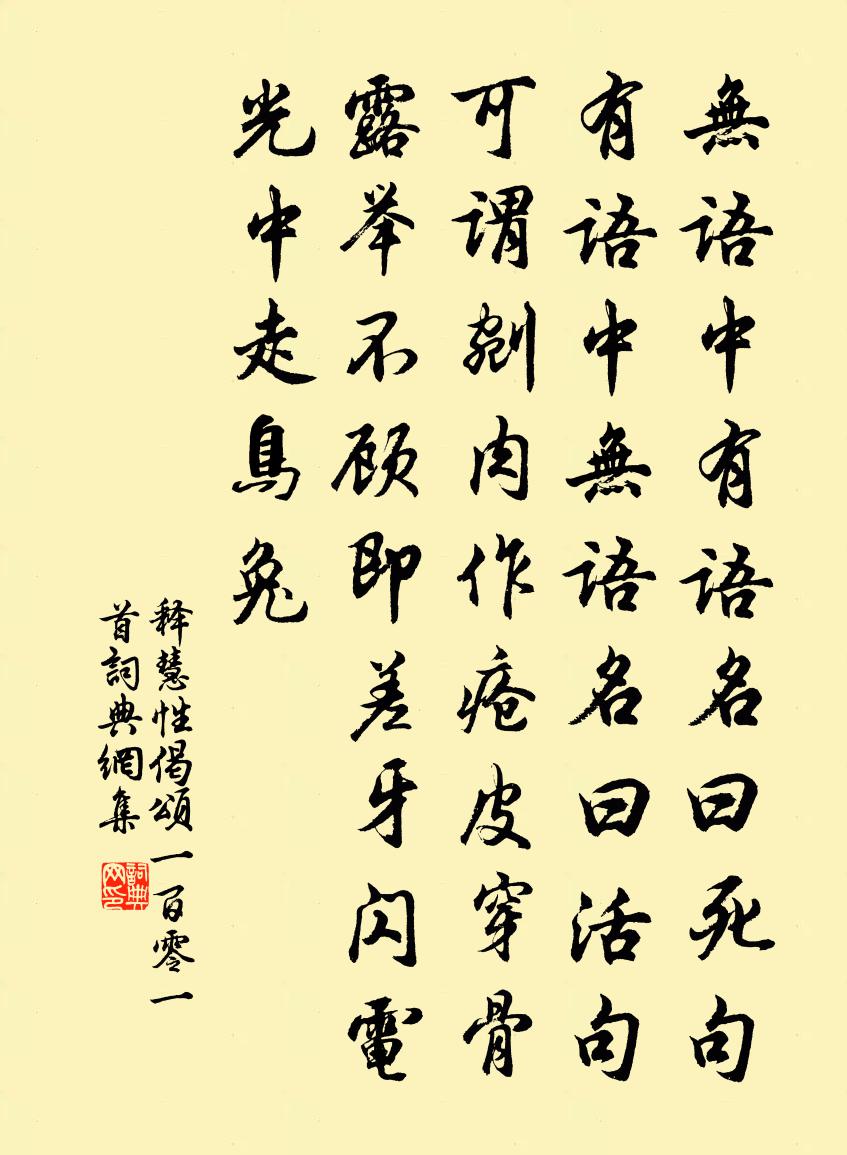 無語中有語名曰死句
有語中無語名曰活句
可謂剜肉作疮皮穿骨
露举不顾即差牙闪電
光中走烏兔
释慧性偈頌一百零一
首詞典網集
詞典網印